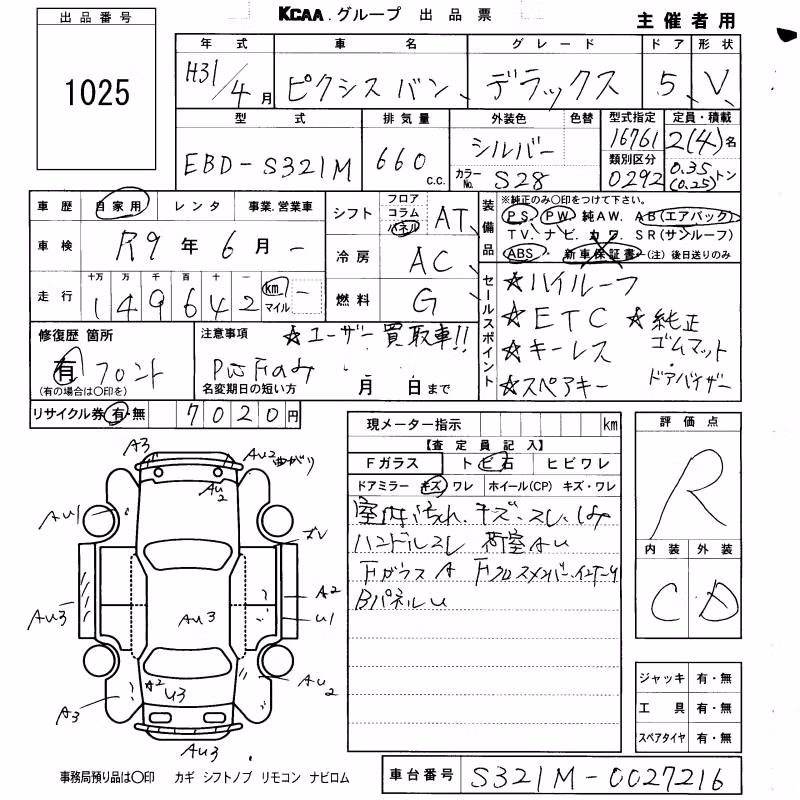 KCAA.グループ 出品票
主催者用
出品番号
1025
年式 車名 グレード ドア 形状
H31/4月 ピクシス バン デラックス 5 V
型式 排気量 外装色 色替 型式指定 定員・積載
EBD-S321M 660 c.c. シルバー 16761 2(4)名
カラーNo. S28 類別区分 0292 0.35 (0.25)トン
車歴 自家用 レンタ 事業.営業車
車検 R9年6月 -
走行 十万 万 千 百 十 一
149642 km マイル -
シフト フロア コラム パネル AT
冷房 AC
燃料 G
装備品 ※純正のみ〇印をつけて下さい。
PS, PW, 純AW. AB(エアバック)
TV. ナビ. カワ. SR(サンルーフ)
ABS. 新車保証書-(注) 後日送りのみ
セールスポイント
☆ハイルーフ
☆ETC ☆純正
☆キーレス ゴムマット
☆スペアキー ドアバイザー
修復歴 箇所
有 フロント
(有の場合は〇印を)
注意事項 ☆ユーザー買取車!!
名変期日の短い方 月 日まで
リサイクル券 有・無 7020円
現メーター指示 km
【査定員記入】
Fガラス トビ石 ヒビワレ
ドアミラー キズ ワレ ホイール(CP) キズ・ワレ
室内汚れ、キズ、スレ、しみ
ハンドルスレ 荷室AU
FガラスA Fクロスメンバー、インナーU
BパネルU
評価点
R
内装 外装
C D
ジャッキ 有・無
工具 有・無
スペアタイヤ 有・無
A3 AU2 曲がり
AU2
AU1
AU3 AU3 A2
U1
A2 U3 AU2
A3
AU3
事務局預り品は〇印 カギ シフトノブ リモコン ナビロム
車台番号 S321M-0027216